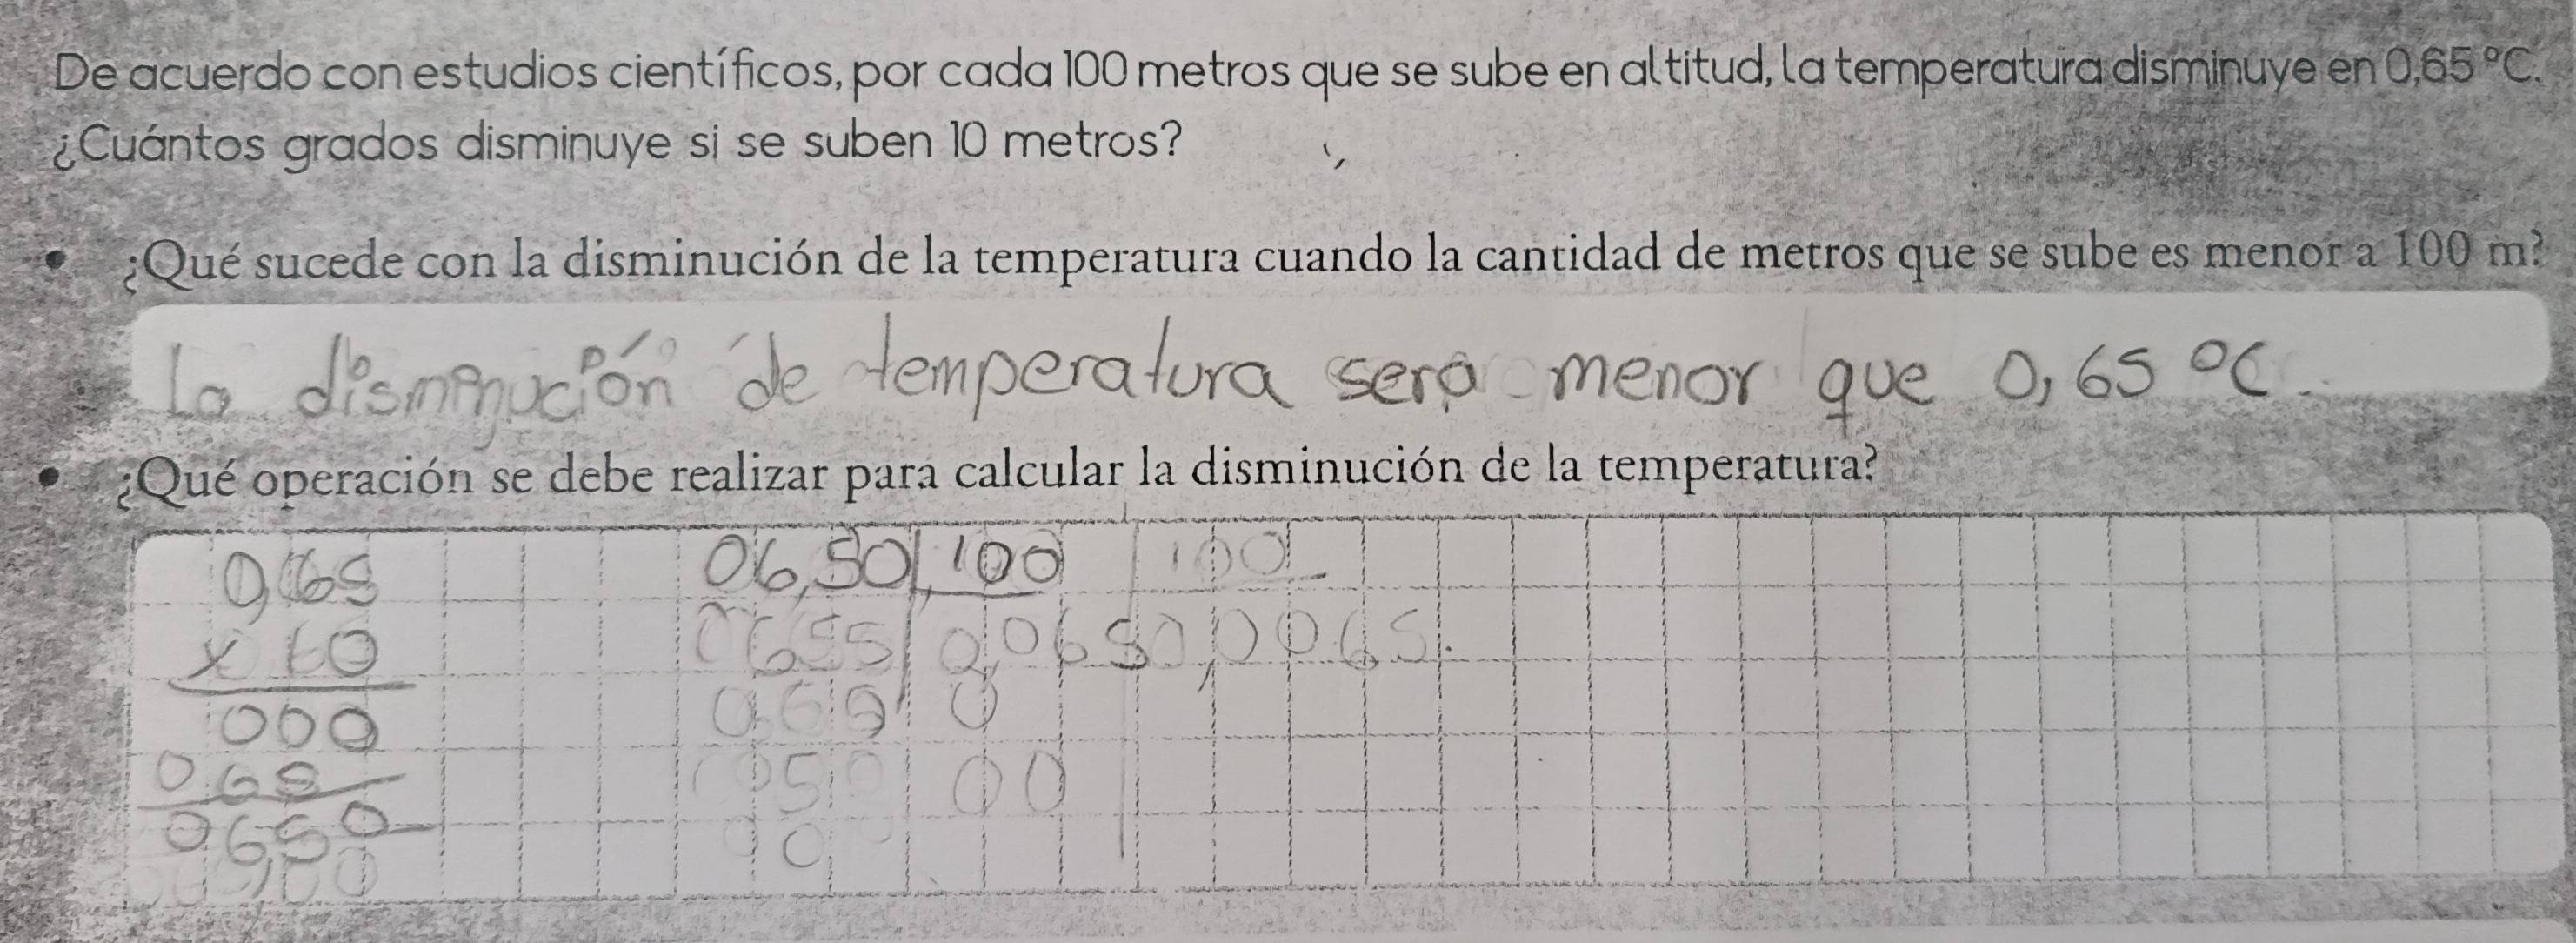 De acuerdo con estudios científicos, por cada 100 metros que se sube en altitud, la temperatura disminuye en 0,65 °C.
¿Cuántos grados disminuye si se suben 10 metros?
• ¿Qué sucede con la disminución de la temperatura cuando la cantidad de metros que se sube es menor a 100 m?
La disminución de temperatura sera menor que 0,65 °C.
• ¿Qué operación se debe realizar para calcular la disminución de la temperatura?
0,65 06,50 100 100
x 10 0,065 0,0065
000
065 00
06,50